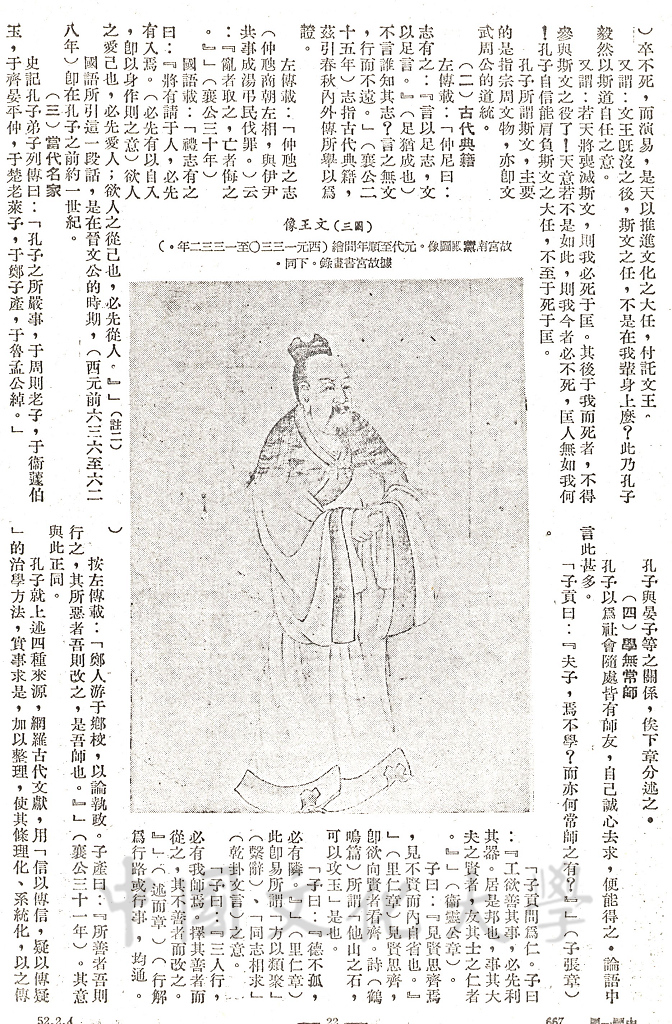 ）卒不死，而演易，是天以推進文化之大任，付託文王。
又謂：文王旣沒之後，斯文之任，不是在我輩身上麼？此乃孔子
毅然以斯道自任之意。
又謂：若天將喪滅斯文，則我必死于匡。其後于我而死者，不得
參與斯文之役了！天意若不是如此，則我今者必不死，匡人無如我何
！孔子自信能肩負斯文之大任，不至于死于匡。
孔子所謂斯文，主要
的是指宗周文物，亦卽文
武周公的道統。
（二）古代典籍
左傳載：「仲尼曰：
志有之：『言以足志，文
以足言。』（足猶成也）
不言誰知其志？言之無文
，行而不遠。」（襄公二
十五年）志指古代典籍，
茲引春秋內外傳所舉以爲
證。
左傳載：「仲虺之志
（仲虺商朝左相，與伊尹
共事成湯弔民伐罪。）云
：『亂者取之，亡者侮之
。』」（襄公三十年）
國語載：「禮志有之
曰：『將有請于人，必先
有入焉。（必先有以自入
，卽以身作則之意）欲人
之愛己也，必先愛人；欲人之從己也，必先從人。』」（註二）
國語所引這一段話，是在晉文公的時期，（西元前六三六至六二
八年）卽在孔子之前約一世紀。
（三）當代名家
史記孔子弟子列傳曰：「孔子之所嚴事，于周則老子，于衞蘧伯
玉，于齊晏平仲，于楚老萊子，于鄭子產，于魯孟公綽。」
像王文（三圖）
（。年二三三一至〇三三一元西）繪間年順至代元。像圖殿南宮故
。同下。錄畫書宮故據
孔子與晏子等之關係，俟下章分述之。
（四）學無常師
孔子以爲社會隨處皆有師友，自己誠心去求，便能得之。論語中
言此甚多。
「子貢曰：『夫子，焉不學？而亦何常師之有？』」（子張章）
。
「子貢問爲仁。子曰
：『工欲善其事，必先利
其器。居是邦也，事其大
夫之賢者，友其士之仁者
。』」（衞靈公章）。
子曰：『見賢思齊焉
，見不賢而內自省也。』
」（里仁章）見賢思齊，
卽欲向賢者看齊。詩（鶴
鳴篇）所謂「他山之石，
可以攻玉」是也。
「子曰：『德不孤，
必有隣』。」（里仁章）
此卽易所謂「方以類聚」
（繫辭）、「同志相求」
（乾卦文言）之意。
「子曰『三人行，
必有我師焉。擇其善者而
從之，其不善者而改之。
』」（述而章）（行解
爲行路或行事，均通。
）
按左傳載：「鄭人游于鄉校，以論執政。子產曰：『所善者吾則
行之，其所惡者吾則改之，是吾師也。』」（襄公三十一年）。其意
與此正同。
孔子就上述四種來源，網羅古代文獻，用「信以傳信，疑以傳疑
」的治學方法，實事求是，加以整理，使其條理化、系統化，以之傳
52.2.4
— 22 —
667
中國文化大學